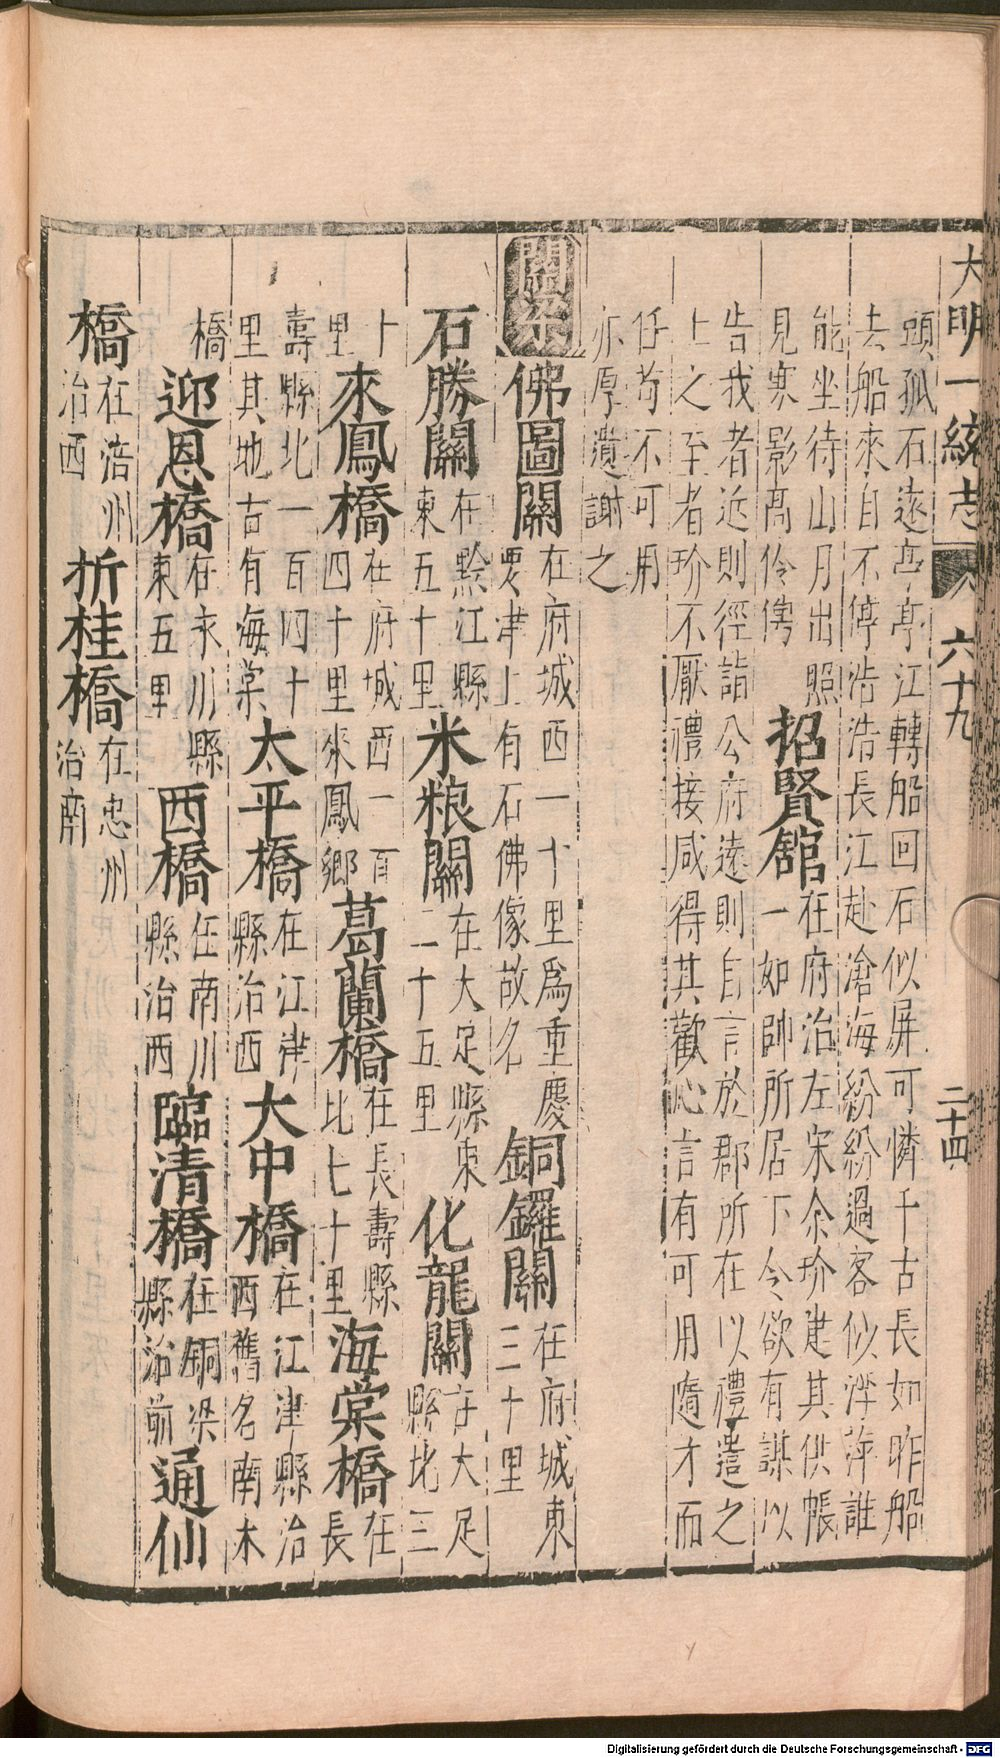 大明一統志 卷六十九 二十四
頭孤石遠亭亭江轉船回石似屏可憐千古長如昨船
去船來自不停浩浩長江赴滄海紛紛過客似浮萍誰
能坐待山月出照
見寒影高伶俜
招賢舘
在府治左宋余玠建其供帳
一如帥所居下令欲有謀以
告我者近則徑詣公府遠則自言於郡所在以禮遣之
上之至者玠不厭禮接咸得其歡心言有可用隨才而
任苟不可用
亦厚遺謝之
關梁
佛圖關
在府城西一十里爲重慶
要津上有石佛像故名
銅鑼關
在府城東
三十里
石勝關
在黔江縣
東五十里
米粮關
在大足縣東
二十五里
化龍關
在大足
縣北三
十
里
來鳳橋
在府城西一百
四十里來鳳鄉
葛蘭橋
在長壽縣
北七十里
海棠橋
在
長
壽縣北一百四十
里其地古有海棠
太平橋
在江津
縣治西
大中橋
在江津縣治
西舊名南木
橋
迎恩橋
在永川縣
東五里
西橋
在南川
縣治西
臨清橋
在銅梁
縣治前
通仙
橋
在涪州
治西
折桂橋
在忠州
治南
Digitalisierung gefördert durch die Deutsche Forschungsgemeinschaft - DFG